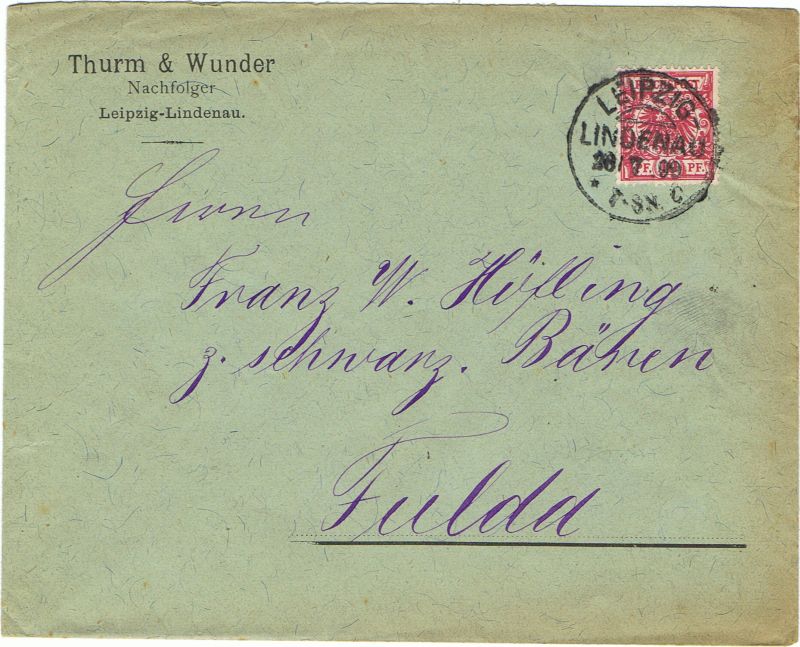 Thurm & Wunder
Nachfolger
Leipzig-Lindenau.
LEIPZIG-
LINDENAU
PF. PF.
* 7-8N. C
Herrn
Franz W. Höfling
z. schwarz. Bären
Fulda